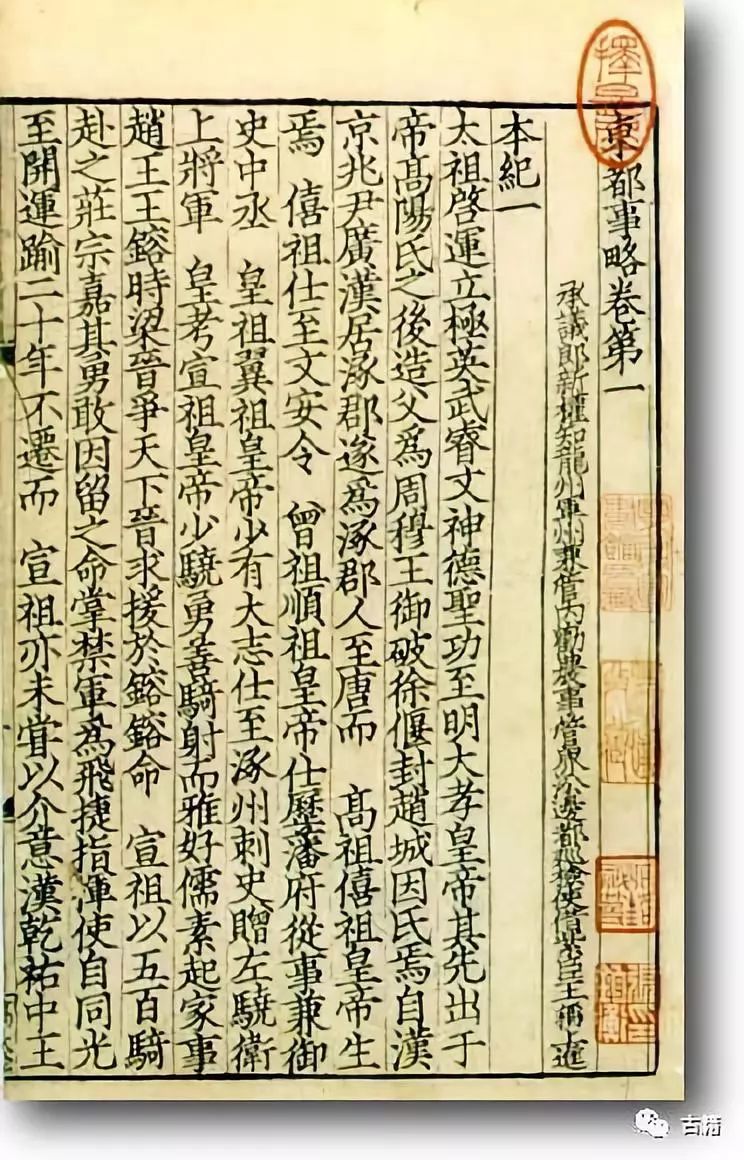 東都事略卷第一
承議郎新權知龍州軍州兼管內勸農事管界沿邊都巡檢使借紫臣王稱上進
本紀一
太祖啓運立極英武睿文神德聖功至明大孝皇帝其先出于
帝高陽氏之後造父爲周穆王御破徐偃封趙城因氏焉自漢
京兆尹廣漢居涿郡遂爲涿郡人至唐而 高祖僖祖皇帝生
焉 僖祖仕至文安令 曾祖順祖皇帝仕歷藩府從事兼御
史中丞 皇祖翼祖皇帝少有大志仕至涿州刺史贈左驍衛
上將軍 皇考宣祖皇帝少驍勇善騎射而雅好儒素起家事
趙王王鎔時梁晉爭天下晉求援於鎔鎔命 宣祖以五百騎
赴之莊宗嘉其勇敢因留之命掌禁軍爲飛捷指揮使自同光
至開運踰二十年不遷而 宣祖亦未嘗以介意漢乾祐中王
古籍